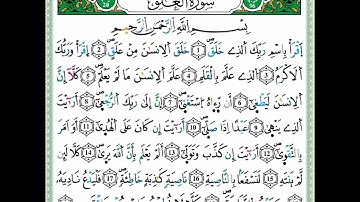 سُورَةُ العَلَقِ
بِسْمِ اللَّهِ الرَّحْمَٰنِ الرَّحِيمِ
اقْرَأْ بِاسْمِ رَبِّكَ الَّذِي خَلَقَ ١ خَلَقَ الْإِنسَانَ مِنْ عَلَقٍ ٢ اقْرَأْ وَرَبُّكَ
الْأَكْرَمُ ٣ الَّذِي عَلَّمَ بِالْقَلَمِ ٤ عَلَّمَ الْإِنسَانَ مَا لَمْ يَعْلَمْ ٥ كَلَّا إِنَّ
الْإِنسَانَ لَيَطْغَىٰ ٦ أَن رَّآهُ اسْتَغْنَىٰ ٧ إِنَّ إِلَىٰ رَبِّكَ الرُّجْعَىٰ ٨ أَرَأَيْتَ
الَّذِي يَنْهَىٰ ٩ عَبْدًا إِذَا صَلَّىٰ ١٠ أَرَأَيْتَ إِن كَانَ عَلَى الْهُدَىٰ ١١ أَوْ أَمَرَ
بِالتَّقْوَىٰ ١٢ أَرَأَيْتَ إِن كَذَّبَ وَتَوَلَّىٰ ١٣ أَلَمْ يَعْلَم بِأَنَّ اللَّهَ يَرَىٰ ١٤ كَلَّا لَئِن
لَّمْ يَنتَهِ لَنَسْفَعًا بِالنَّاصِيَةِ ١٥ نَاصِيَةٍ كَاذِبَةٍ خَاطِئَةٍ ١٦ فَلْيَدْعُ نَادِيَهُ ١٧